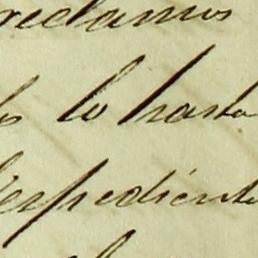 reclamos
lo hasta
espediente